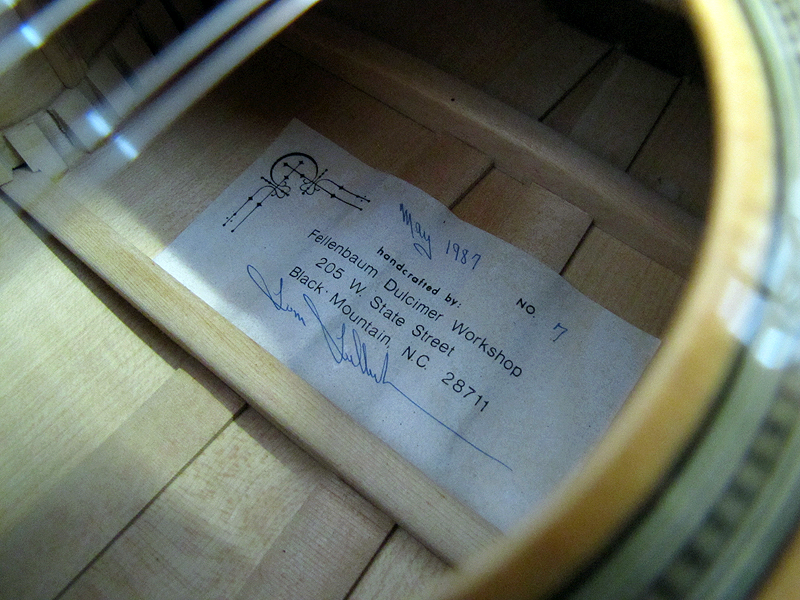 May 1987
NO. 7
handcrafted by:
Fellenbaum Dulcimer Workshop
205 W. State Street
Black Mountain, N.C. 28711